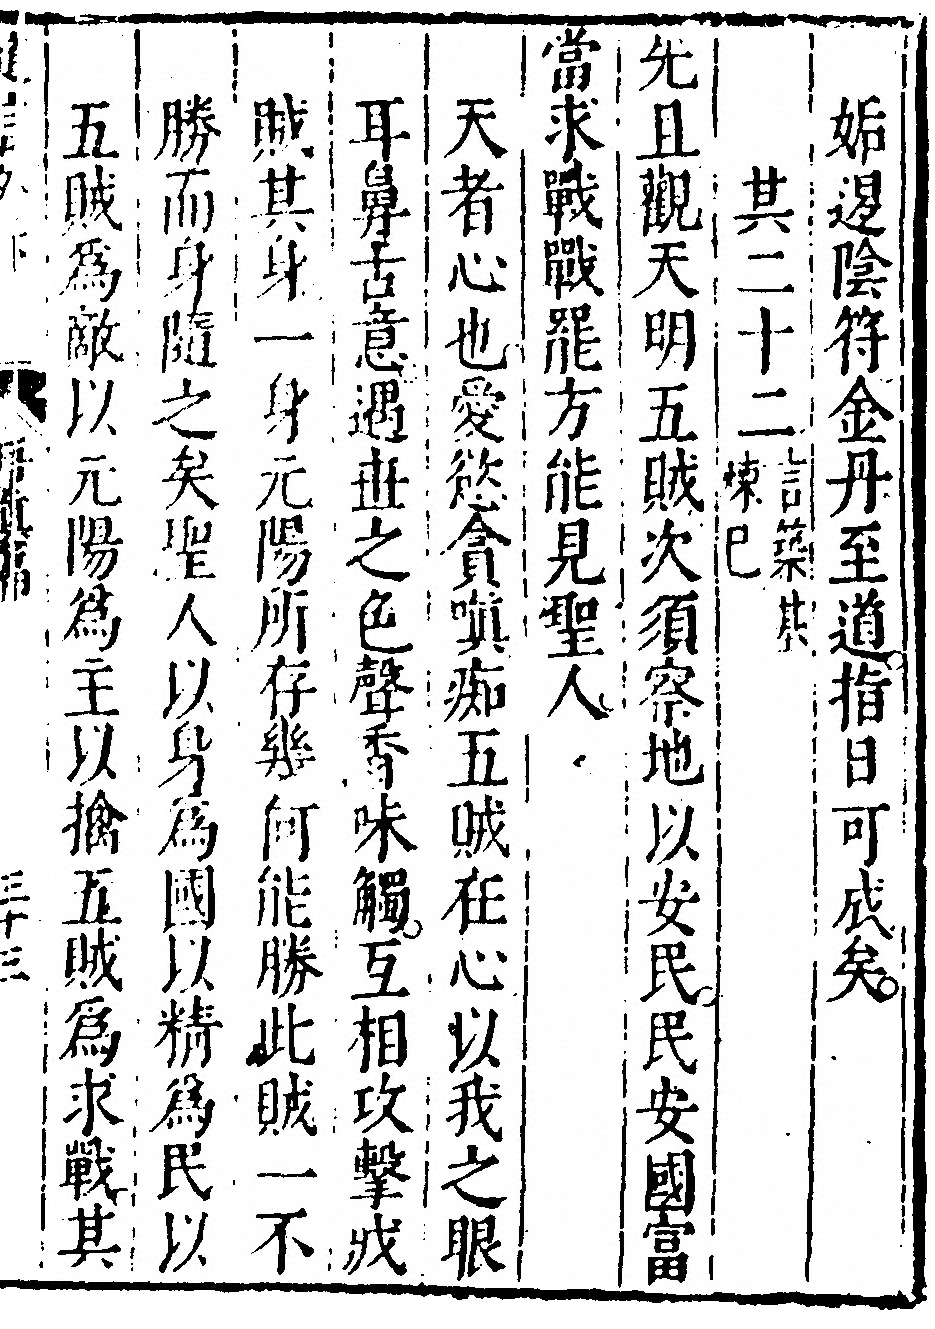 姤逿陰符金丹至道指日可成矣
其二十二言築基煉己
先且觀天明五賊次須察地以安民民安國富
當求戰戰罷方能見聖人
天者心也愛慾貪嗔痴五賊在心以我之眼
耳鼻舌意遇世之色聲香味觸互相攻擊戕
賊其身一身元陽所存幾何能勝此賊一不
勝而身隨之矣聖人以身為國以精為民以
五賊為敵以元陽為主以擒五賊為求戰其
三十三